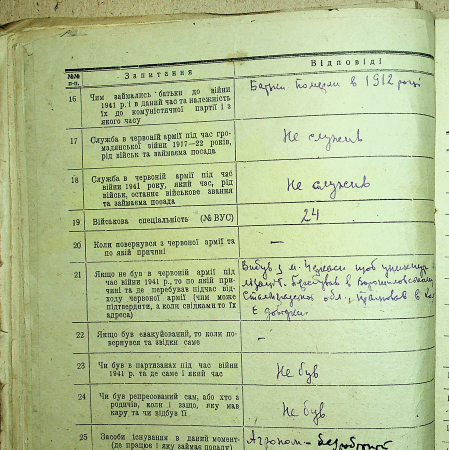 №№ п-п. Запитання Відповіді
16 Чим займались батьки до війни
1941 р. і в даний час та належність
їх до комуністичної партії і з
якого часу
Батьки померли в 1912 році
17 Служба в червоній армії під час гро-
мадянської війни 1917—22 років,
рід військ та займаєма посада
Не служив
18 Служба в червоній армії під час
війни 1941 року, який час, рід
військ, останнє військове звання
та займаєма посада
Не служив
19 Військова спеціяльність (№ ВУС)
24
20 Коли повернувся з червоної армії та
по якій причині
—
21 Якщо не був в червоній армії під
час війни 1941 р., то по якій при-
чині та де перебував підчас від-
ходу червоної армії (чим може
підтвердити, а коли свідками то їх
адреса)
Вибув з м. Черкаси щоб уникнути
в Ворошиловському
обл., працював в
Є довідки.
22 Якщо був евакуйований, то коли по-
вернувся та звідки саме
–
23 Чи був в партизанах під час війни
1941 р. та де саме і який час
Не був
24 Чи був репресований сам, або хто з
родичів, коли і ззащо, яку мав
кару та чи відбув її
Не був
25 Засоби існування в даний момент
(де працює і яку займає посаду)
Агроном – безробітний